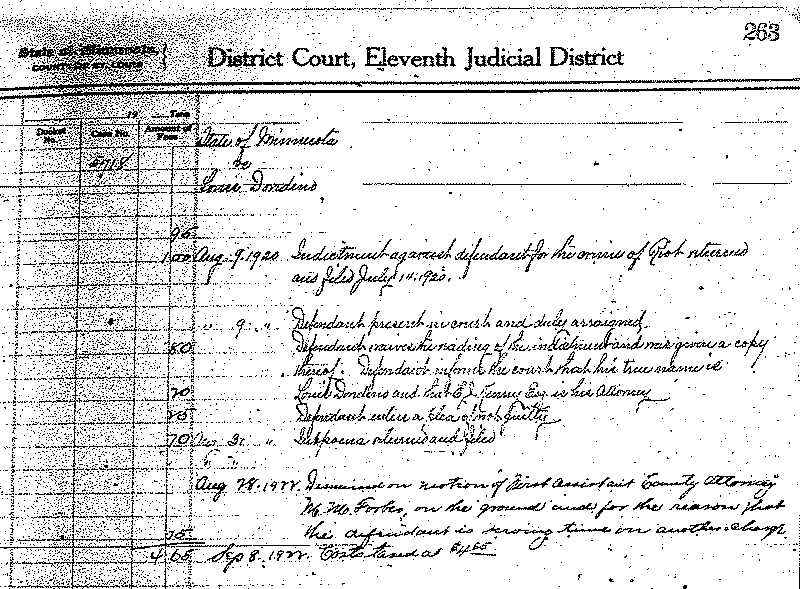 263
State of Minnesota,
COUNTY OF ST. LOUIS
District Court, Eleventh Judicial District
19 Term
Docket No. Case No. Amount of Fees
State of Minnesota
vs
Louis Dondino
95
1 00 Aug. 9. 1920. Indictment against defendant for the crime of Riot returned
and filed July 14. 1920.
" 9. " Defendant present in court and duly arraigned.
Defendant waives the reading of the indictment and was given a copy
50
thereof. Defendant informs the court that his true name is
20 Louis Dondino and that E. L. Kenny Esq. is his Attorney
25 Defendant enters a plea of not guilty
70 31 " Subpoena returned and filed
Aug 28. 1922. Dismissed on motion of First Assistant County Attorney
M. M. Forbes, on the ground and for the reason that
75 the defendant is serving time on another charge
4 65 Sep 8. 1922. Costs taxed at $4.65